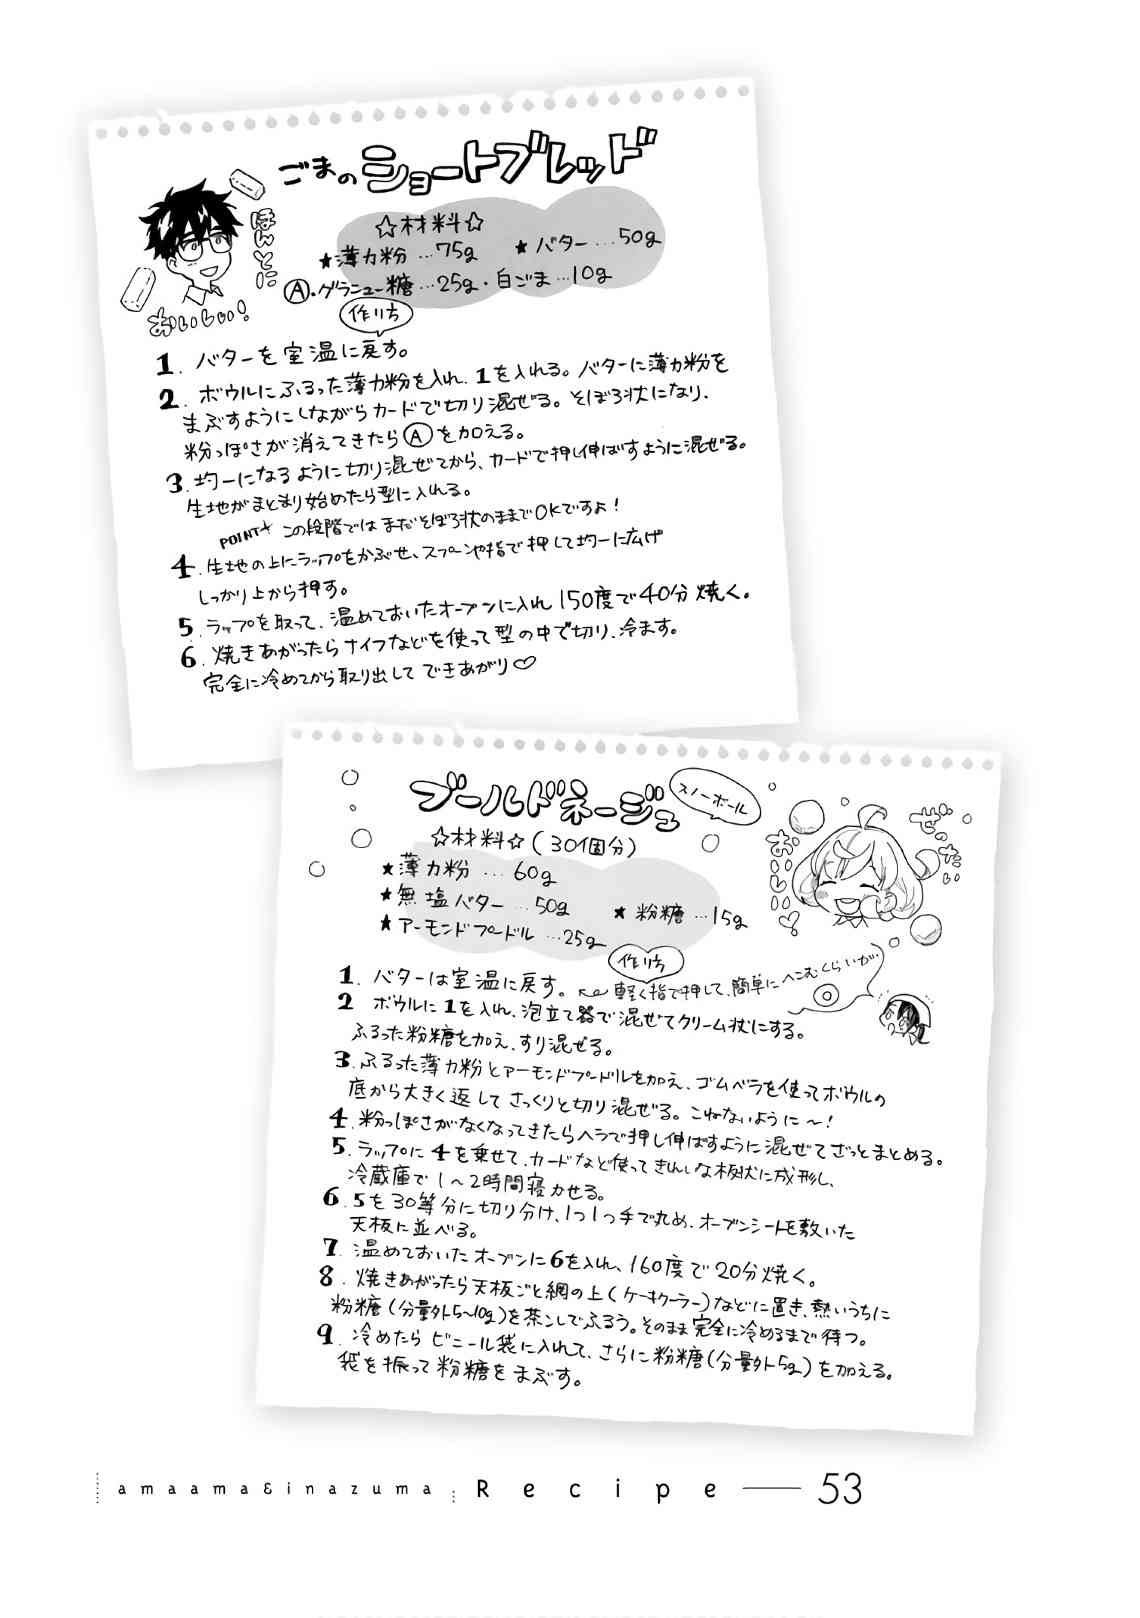 ごまのショートブレッド
ほんとに
おいしい！
☆材料☆
★薄力粉…75g ★バター…50g
Ⓐ・グラニュー糖…25g・白ごま…10g
作り方
1. バターを室温に戻す。
2. ボウルにふるった薄力粉を入れ、1を入れる。バターに薄力粉を
まぶすようにしながらカードで切り混ぜる。そぼろ状になり、
粉っぽさが消えてきたらⒶを加える。
3. 均一になるように切り混ぜてから、カードで押し伸ばすように混ぜる。
生地がまとまり始めたら型に入れる。
POINT★ この段階ではまだそぼろ状のままでOKですよ！
4. 生地の上にラップをかぶせ、スプーンや指で押して均一に広げ
しっかり上から押す。
5. ラップを取って、温めておいたオーブンに入れ150度で40分焼く。
6. 焼きあがったらナイフなどを使って型の中で切り、冷ます。
完全に冷めてから取り出してできあがり♡
ブールドネージュ
スノーボール
ぜったい
おいしい♡
☆材料☆(30個分)
★薄力粉…60g
★無塩バター…50g ★粉糖…15g
★アーモンドプードル…25g
作り方
1. バターは室温に戻す。←軽く指で押して、簡単にへこむくらいが◎
2 ボウルに1を入れ、泡立て器で混ぜてクリーム状にする。
ふるった粉糖を加え、すり混ぜる。
3. ふるった薄力粉とアーモンドプードルを加え、ゴムベラを使ってボウルの
底から大きく返してさっくりと切り混ぜる。こねないように〜！
4. 粉っぽさがなくなってきたらヘラで押し伸ばすように混ぜてざっとまとめる。
5. ラップに4を乗せて、カードなど使ってきれいな板状に成形し、
冷蔵庫で1〜2時間寝かせる。
6. 5を30等分に切り分け、1つ1つ手で丸め、オーブンシートを敷いた
天板に並べる。
7. 温めておいたオーブンに6を入れ、160度で20分焼く。
8. 焼きあがったら天板ごと網の上(ケーキクーラー)などに置き、熱いうちに
粉糖(分量外5〜10g)を茶こしでふるう。そのまま完全に冷めるまで待つ。
9. 冷めたらビニール袋に入れて、さらに粉糖(分量外5g)を加える。
袋を振って粉糖をまぶす。
amaama&inazuma Recipe — 53